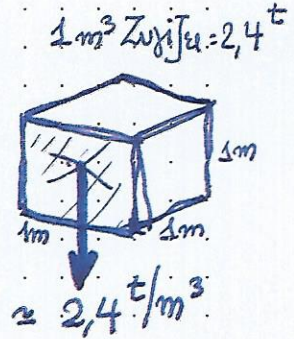 1 m³ Ζυγίζει = 2,4 t
1m
1m
1m
≃ 2,4 t/m³